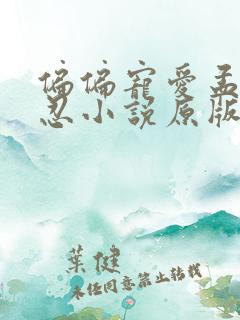 偏偏寵愛孟
忍小說原版
葉健
未經同意禁止轉載